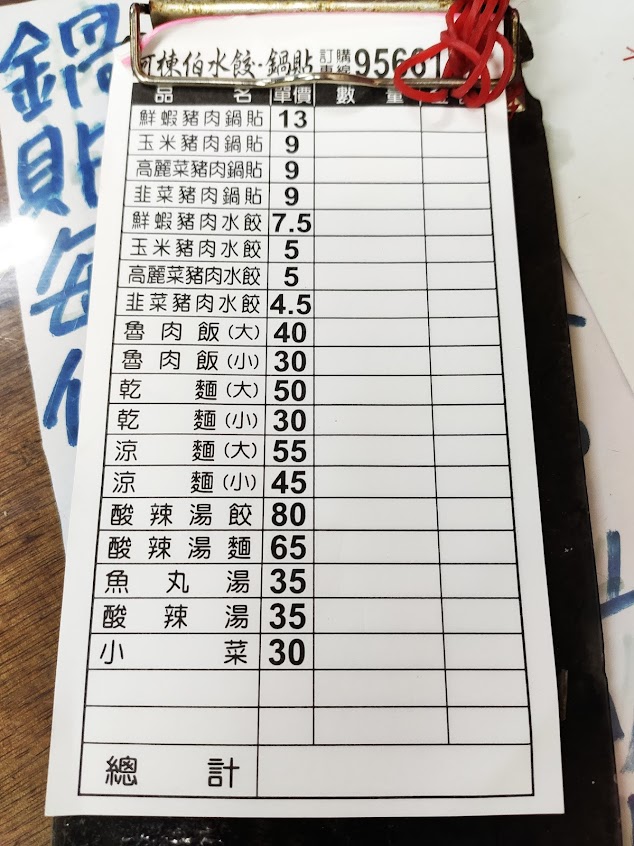 阿棟伯水餃-鍋貼 訂購專線 95661
品名 單價 數量
鮮蝦豬肉鍋貼 13
玉米豬肉鍋貼 9
高麗菜豬肉鍋貼 9
韭菜豬肉鍋貼 9
鮮蝦豬肉水餃 7.5
玉米豬肉水餃 5
高麗菜豬肉水餃 5
韭菜豬肉水餃 4.5
魯肉飯(大) 40
魯肉飯(小) 30
乾麵(大) 50
乾麵(小) 30
涼麵(大) 55
涼麵(小) 45
酸辣湯餃 80
酸辣湯麵 65
魚丸湯 35
酸辣湯 35
小菜 30
總計
鍋貼每